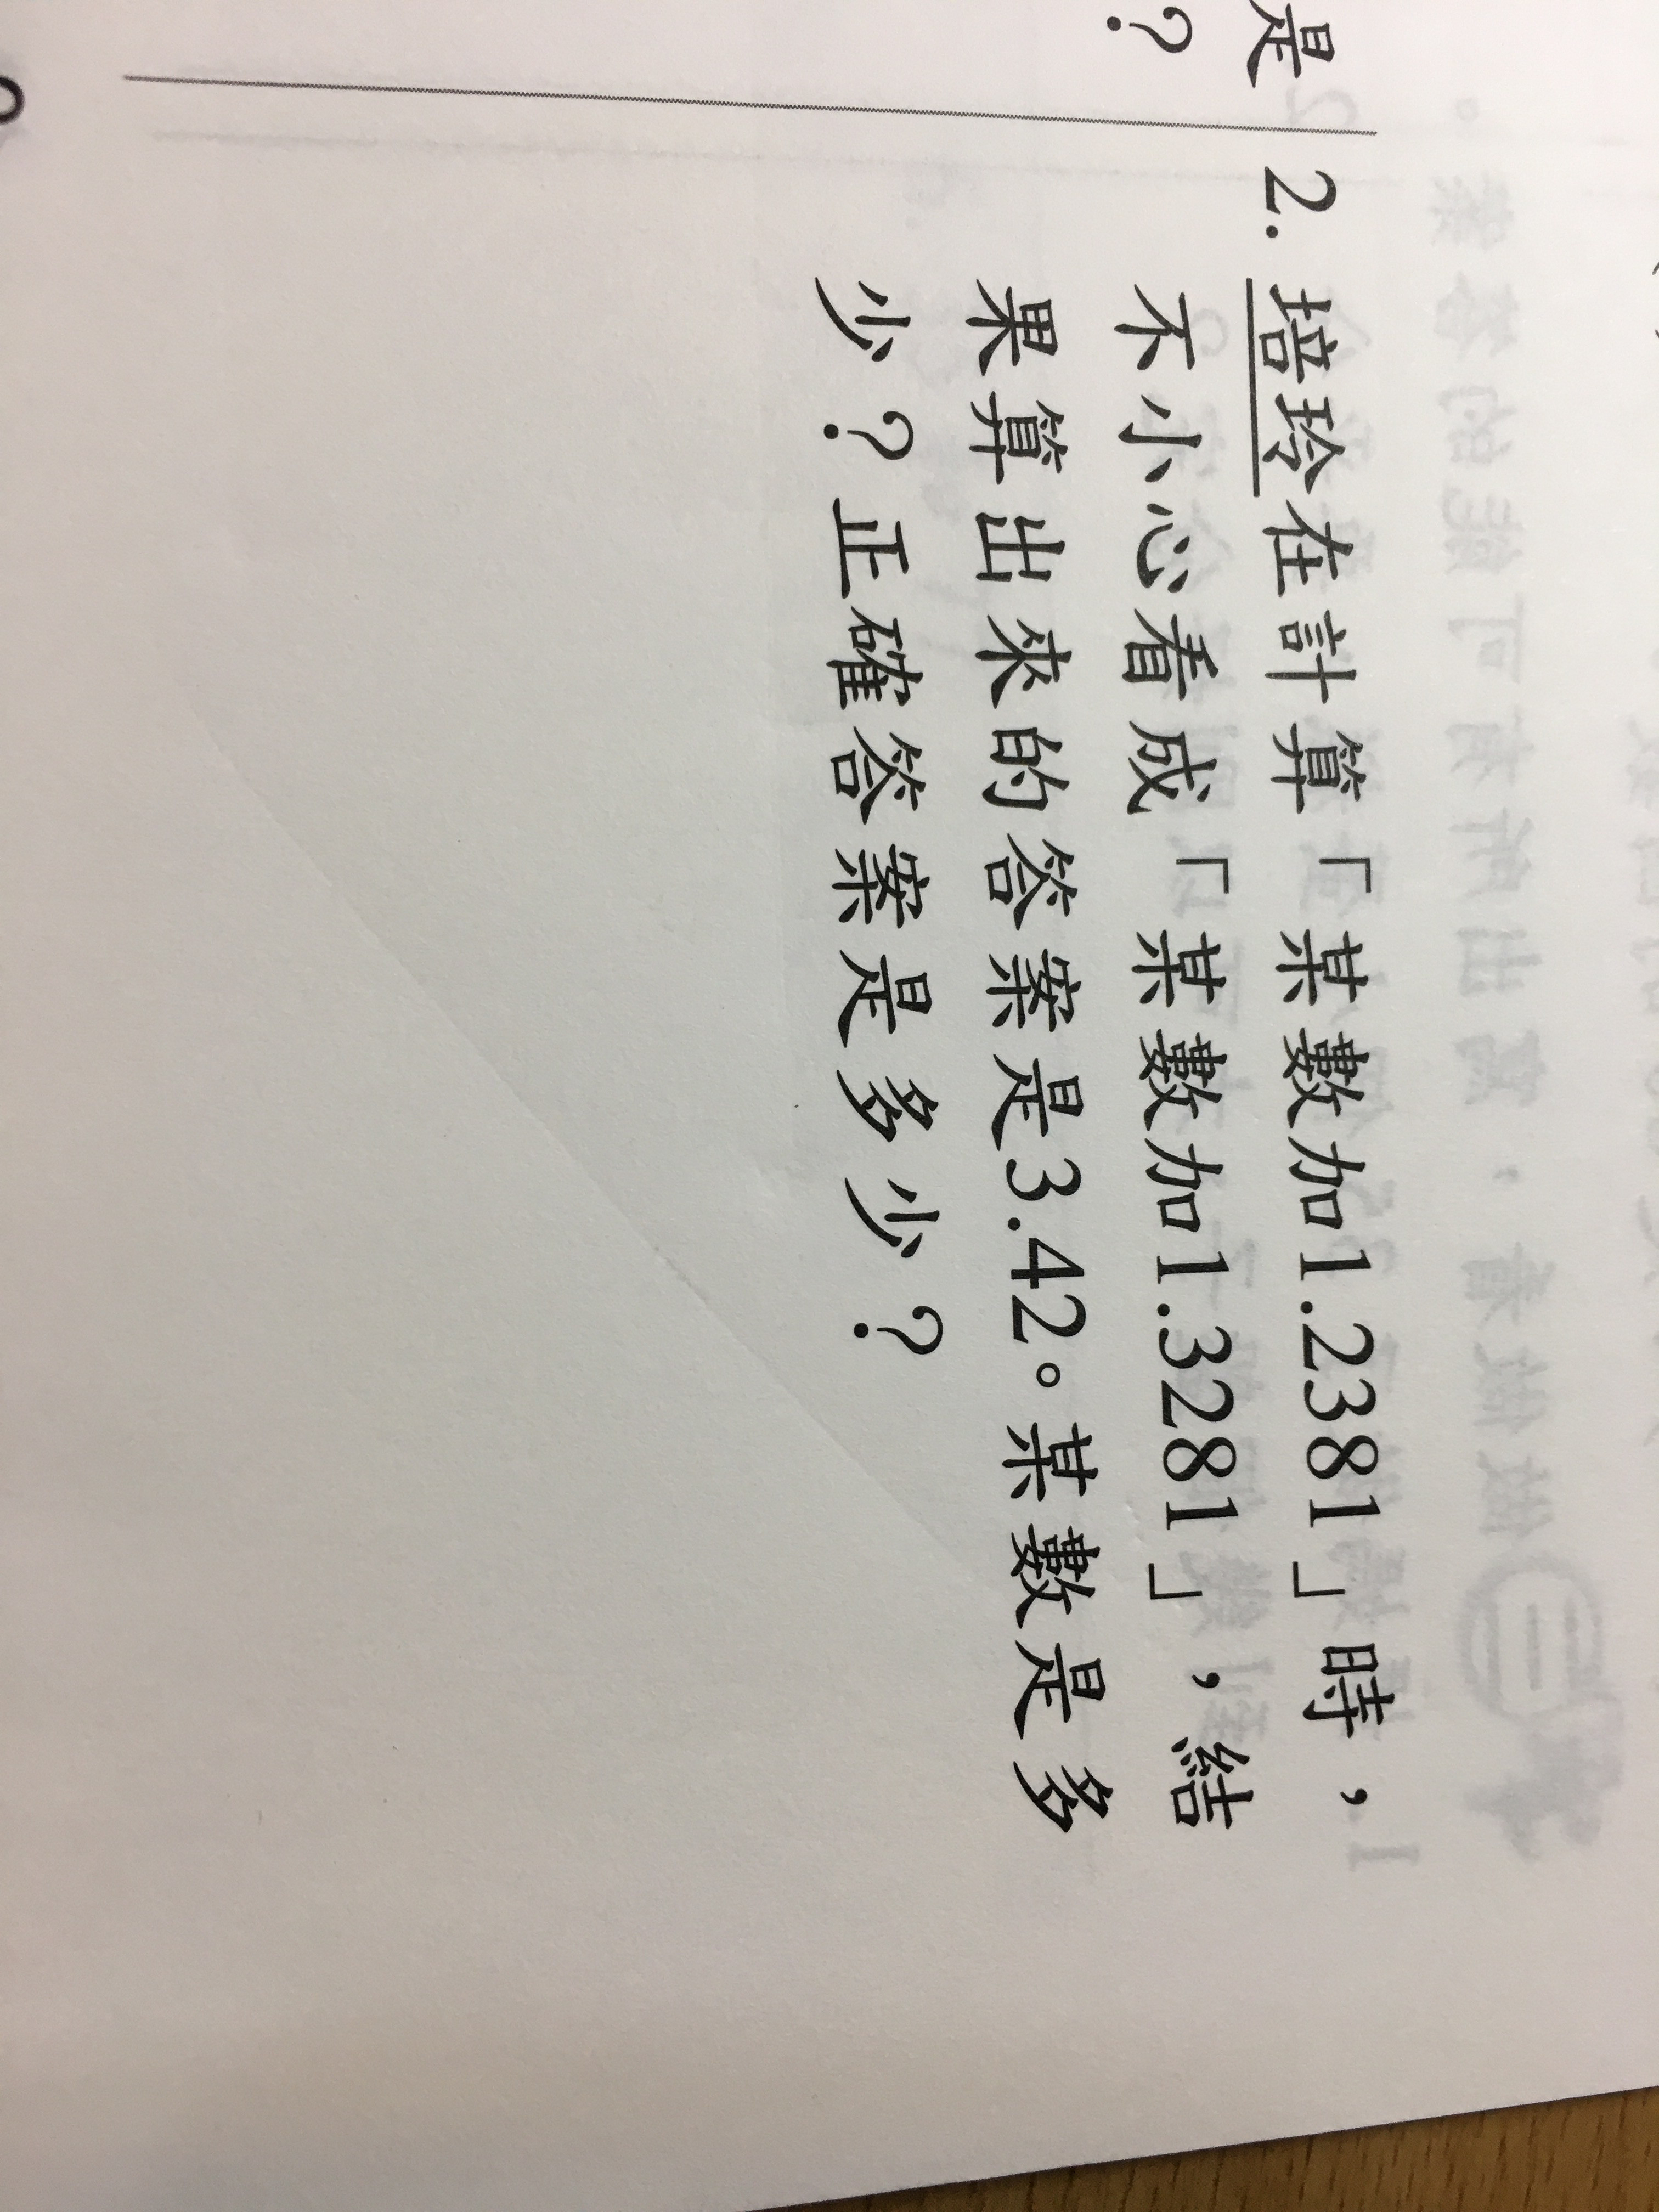 是
?
2. 培玲在計算「某數加1.2381」時，
不小心看成「某數加1.3281」，結
果算出來的答案是3.42。某數是多
少？正確答案是多少？